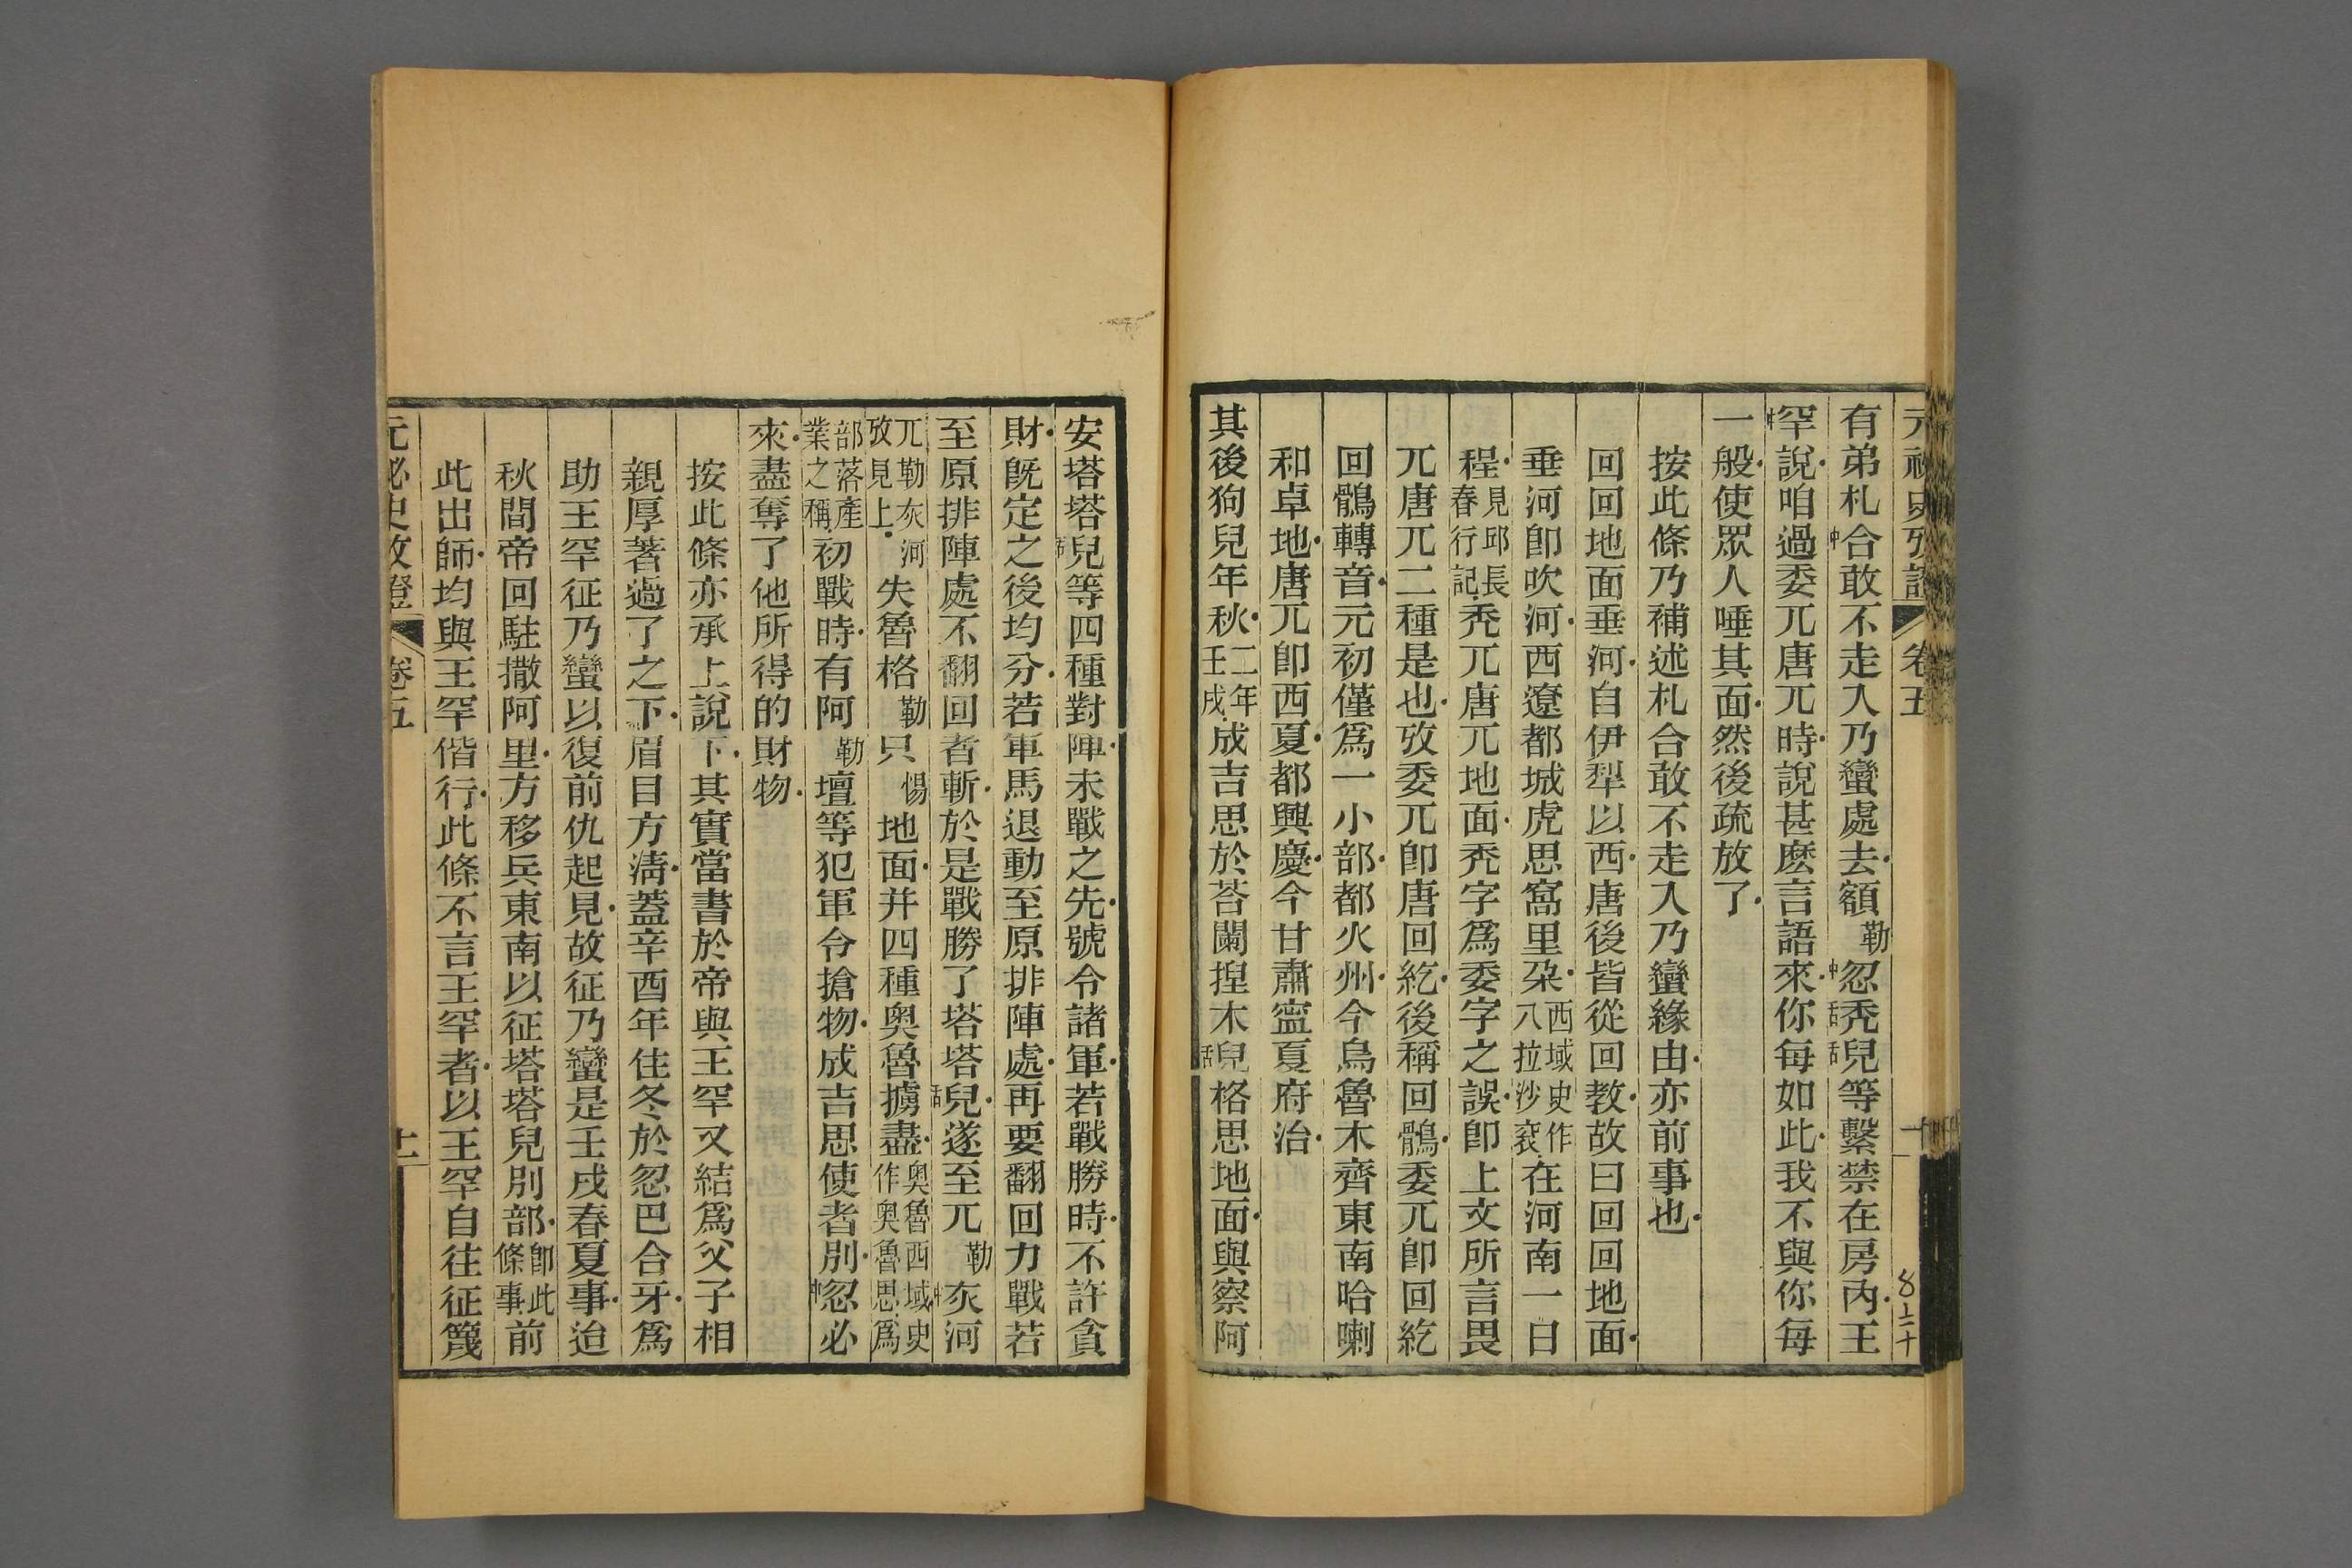 元祕史攷證 卷五 十
有弟札中合敢不走入乃蠻處去額勒中忽禿舌兒舌等繫禁在房內王
中罕說咱過委兀唐兀時說甚麽言語來你每如此我不與你每
一般使眾人唾其面然後疏放了
按此條乃補述札合敢不走入乃蠻緣由亦前事也
回回地面垂河自伊犁以西唐後皆從回教故曰回回地面
垂河卽吹河西遼都城虎思窩里朶西域史作八拉沙袞在河南一日
程見邱長春行記禿兀唐兀地面禿字爲委字之誤卽上文所言畏
兀唐兀二種是也攷委兀卽唐回紇後稱回鶻委兀卽回紇
回鶻轉音元初僅爲一小部都火州今烏魯木齊東南哈喇
和卓地唐兀卽西夏都興慶今甘肅寧夏府治
其後狗兒年秋二年壬戌成吉思於荅闌揑木兒舌格思地面與察阿
安塔塔兒舌等四種對陣未戰之先號令諸軍若戰勝時不許貪
財旣定之後均分若軍馬退動至原排陣處再要翻回力戰若
至原排陣處不翻回者斬於是戰勝了塔塔兒舌遂至兀勒中灰河
兀勒灰河攷見上失魯格勒只惕地面并四種奧魯擄盡奧魯西域史作奧魯思爲
部落產業之稱初戰時有阿勒壇等犯軍令搶物成吉思使者別中忽必
來盡奪了他所得的財物
按此條亦承上說下其實當書於帝與王罕又結爲父子相
親厚著過了之下眉目方淸蓋辛酉年住冬於忽巴合牙爲
助王罕征乃蠻以復前仇起見故征乃蠻是壬戌春夏事迨
秋間帝回駐撒阿里方移兵東南以征塔塔兒別部卽此條事前
此出師均與王罕偕行此條不言王罕者以王罕自往征篾
元祕史攷證 卷五 十一